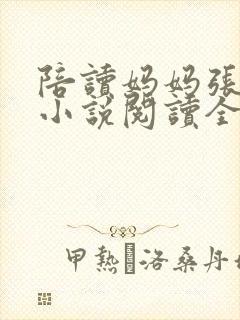 陪讀妈妈張
小說閱讀全
甲熱洛桑丹